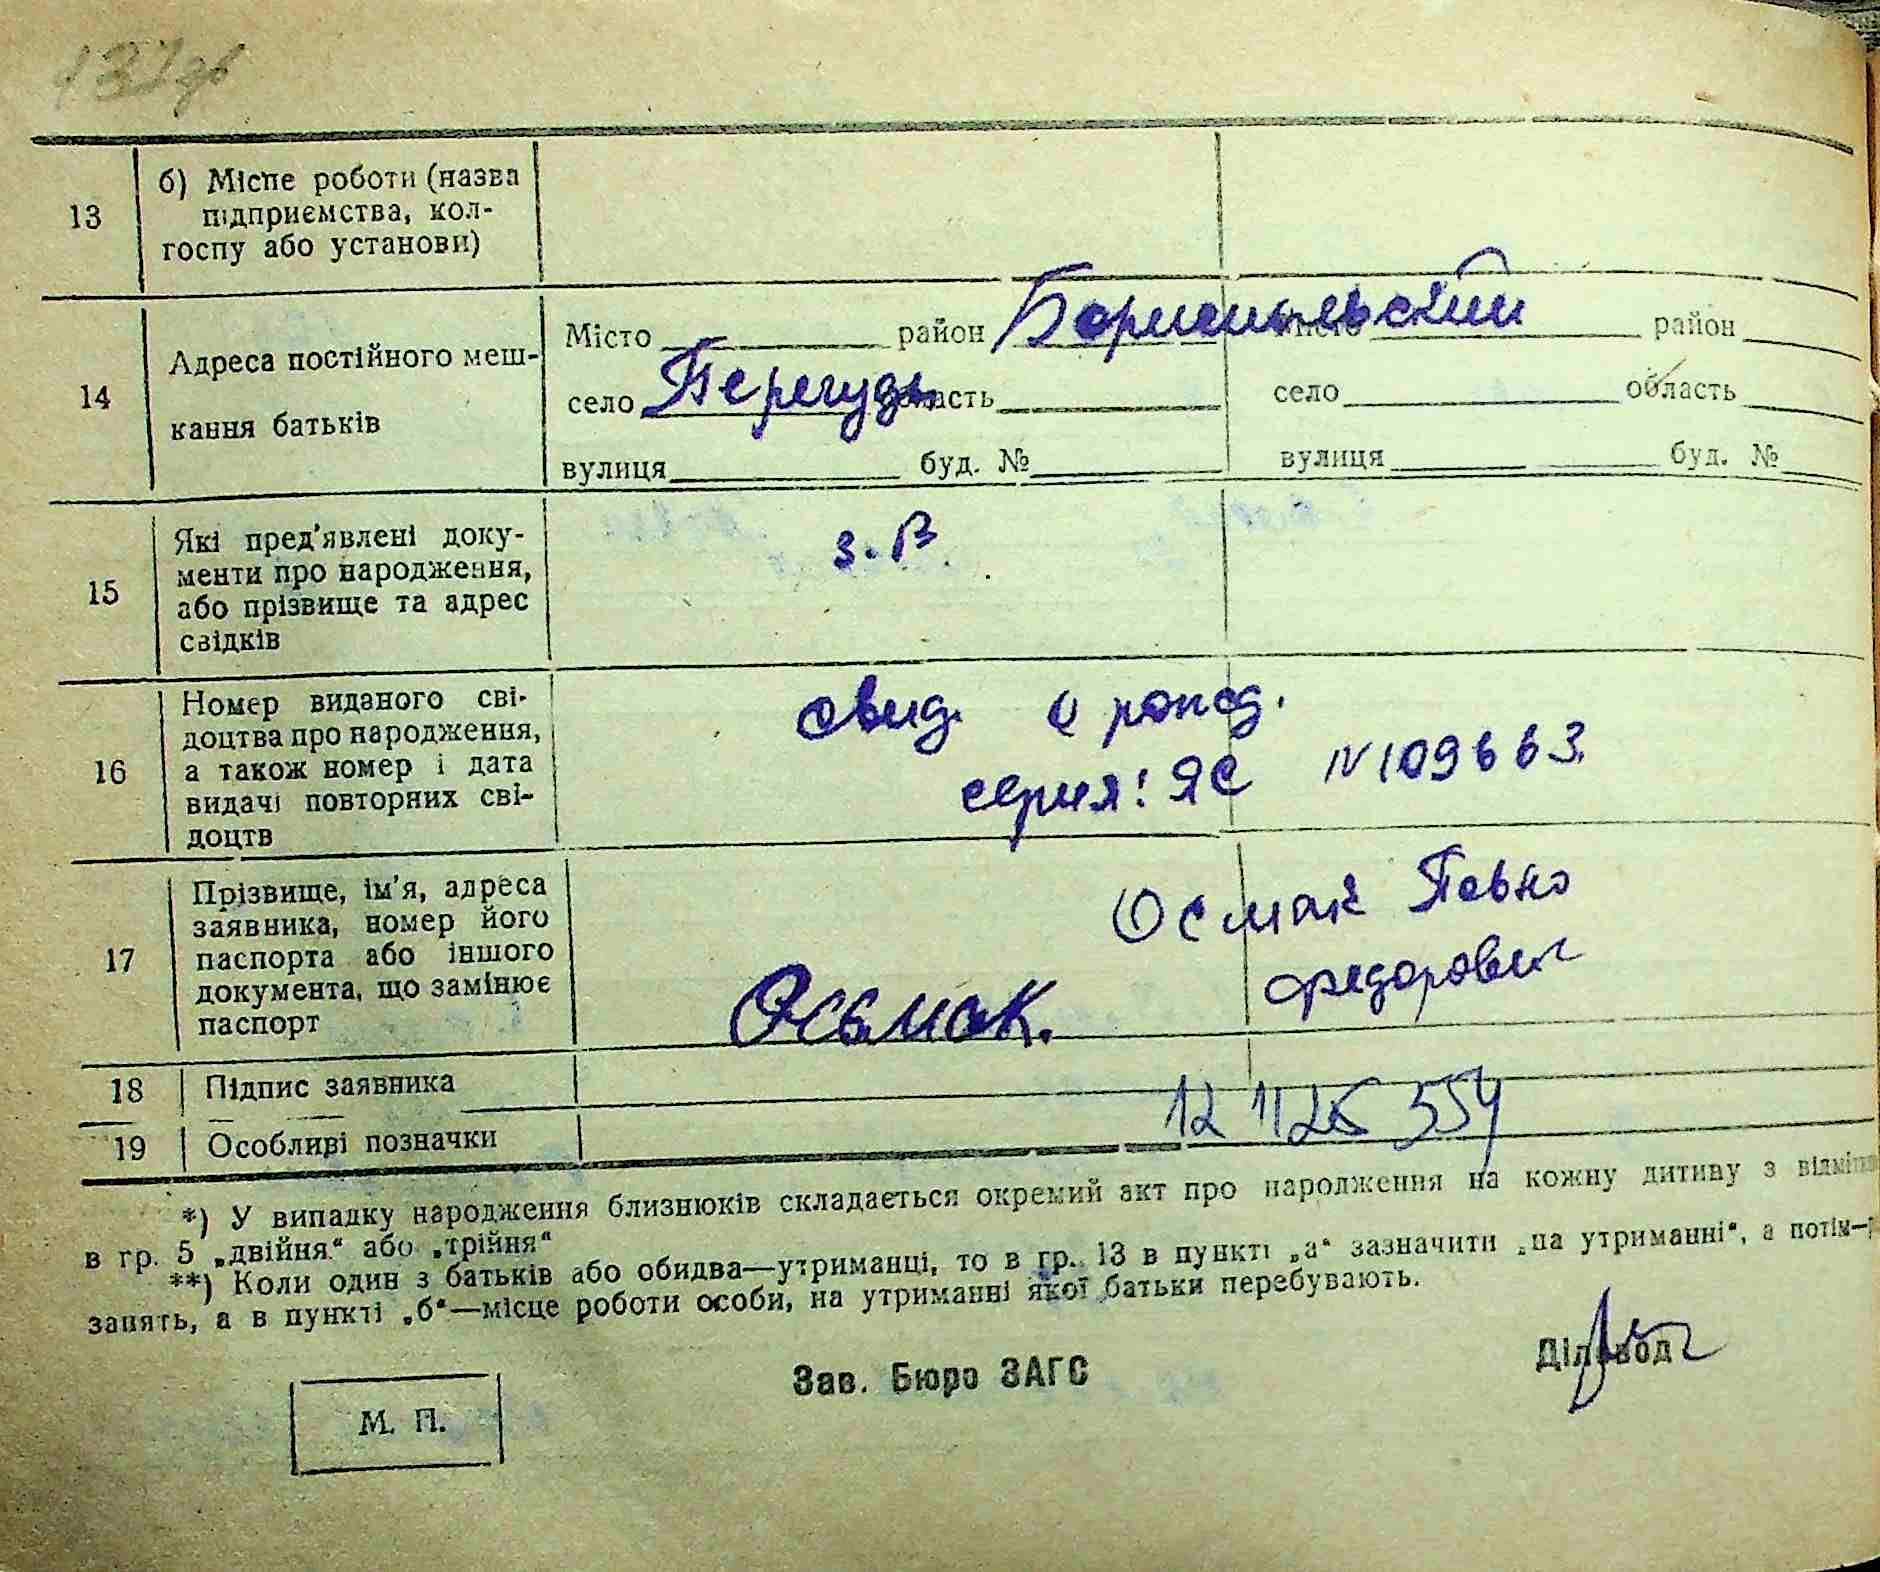 137зв
13 б) Місце роботи (назва
підприємства, кол-
госпу або установи)
14 Адреса постійного меш-
кання батьків
Місто район Бориспильский Місто район
село Перегуды область село область
вулиця буд. № вулиця буд. №
15 Які пред'явлені доку-
менти про народження,
або прізвище та адрес
свідків
з. В
16 Номер виданого сві-
доцтва про народження,
а також номер і дата
видачі повторних сві-
доцтв
свид. о рожд.
серия: ЯС N 109663.
17 Прізвище, ім'я, адреса
заявника, номер його
паспорта або іншого
документа, що замінює
паспорт
Осмак Павло
Федорович
Осьмак.
18 Підпис заявника
19 Особливі позначки
*) У випадку народження близнюків складається окремий акт про народження на кожну дитину з
в гр. 5 „двійня“ або „трійня“
**) Коли один з батьків або обидва—утриманці, то в гр. 13 в пункті „а“ зазначити „на утриманні“, а потім—
занять, а в пункті „б“—місце роботи особи, на утриманні якої батьки перебувають.
М. П.
Зав. Бюро ЗАГС
Діловод